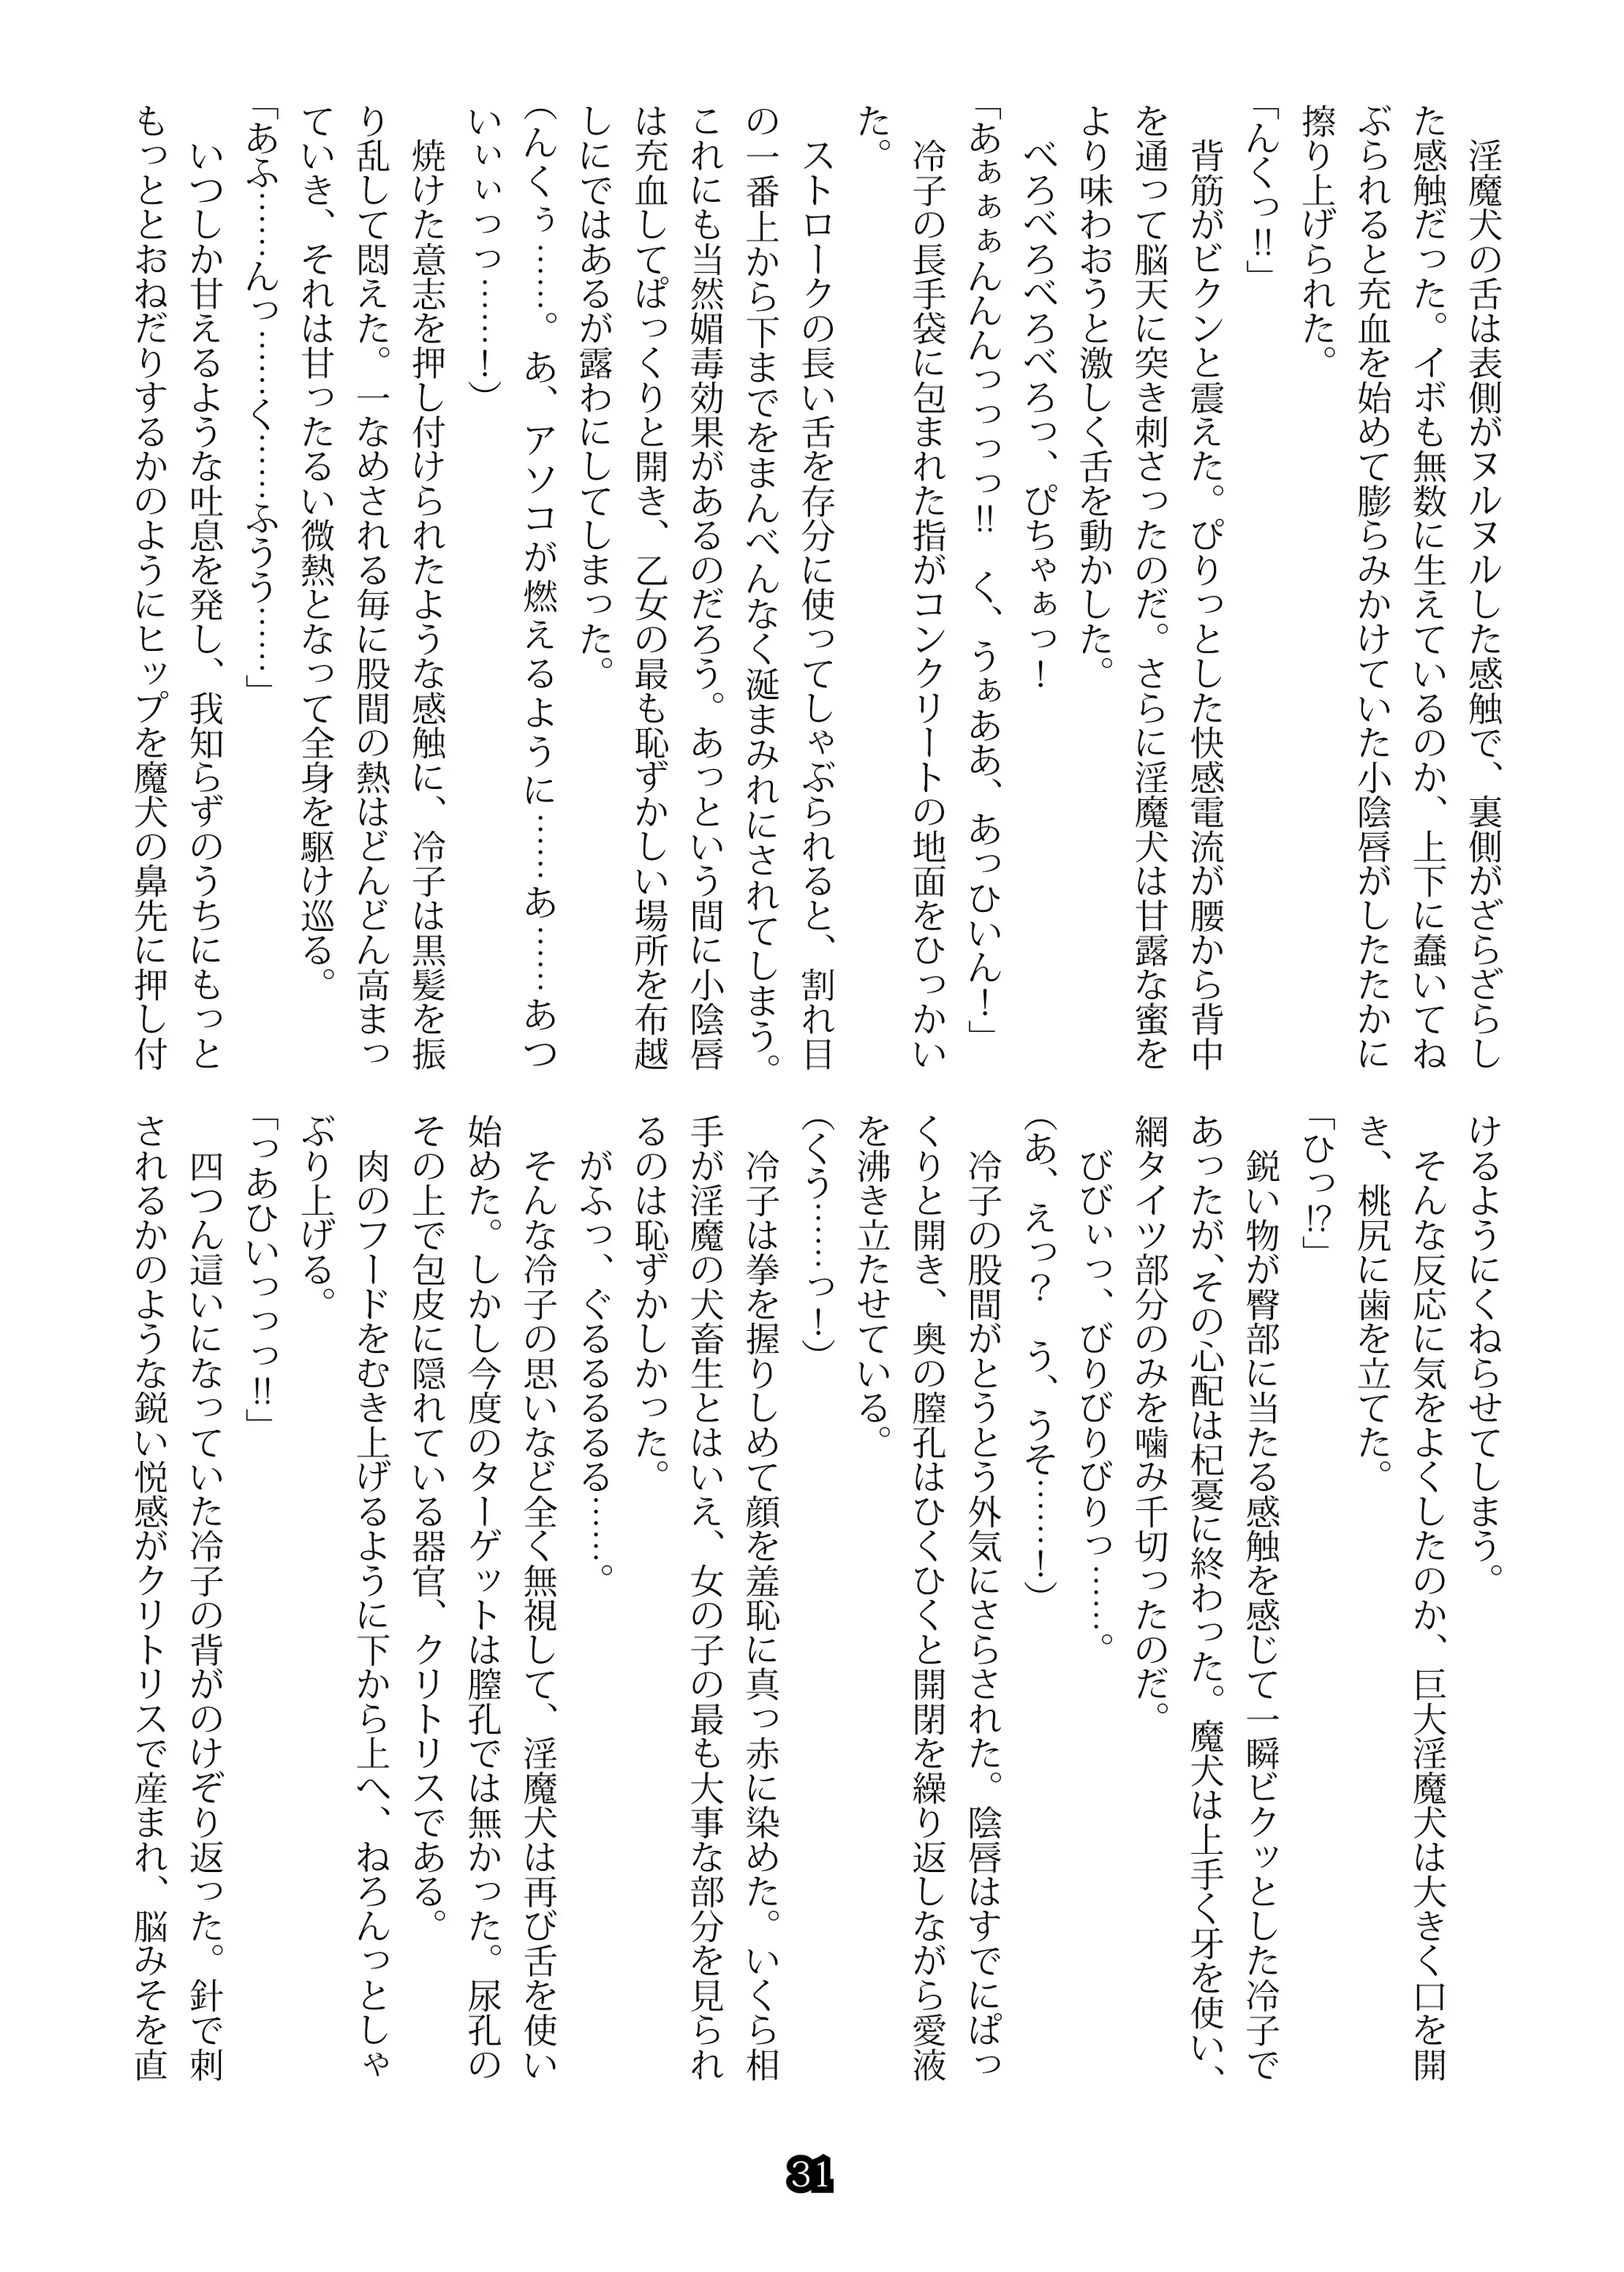 淫魔犬の舌は表側がヌルヌルした感触で、裏側がざらざらし
た感触だった。イボも無数に生えているのか、上下に蠢いてね
ぶられると充血を始めて膨らみかけていた小陰唇がしたたかに
擦り上げられた。
「んくっ!!」
背筋がビクンと震えた。ぴりっとした快感電流が腰から背中
を通って脳天に突き刺さったのだ。さらに淫魔犬は甘露な蜜を
より味わおうと激しく舌を動かした。
べろべろべろべろっ、ぴちゃぁっ！
「あぁぁぁんんんっっっっ!!　く、うぁああ、あっひいん！」
冷子の長手袋に包まれた指がコンクリートの地面をひっかい
た。
ストロークの長い舌を存分に使ってしゃぶられると、割れ目
の一番上から下までをまんべんなく涎まみれにされてしまう。
これにも当然媚毒効果があるのだろう。あっという間に小陰唇
は充血してぱっくりと開き、乙女の最も恥ずかしい場所を布越
しにではあるが露わにしてしまった。
（んくぅ……。あ、アソコが燃えるように……あ……あつ
いぃぃっっ……！）
焼けた意志を押し付けられたような感触に、冷子は黒髪を振
り乱して悶えた。一なめされる毎に股間の熱はどんどん高まっ
ていき、それは甘ったるい微熱となって全身を駆け巡る。
「あふ……んっ……く……ふうう……」
いつしか甘えるような吐息を発し、我知らずのうちにもっと
もっととおねだりするかのようにヒップを魔犬の鼻先に押し付
けるようにくねらせてしまう。
そんな反応に気をよくしたのか、巨大淫魔犬は大きく口を開
き、桃尻に歯を立てた。
「ひっ!?」
鋭い物が臀部に当たる感触を感じて一瞬ビクッとした冷子で
あったが、その心配は杞憂に終わった。魔犬は上手く牙を使い、
網タイツ部分のみを噛み千切ったのだ。
びびぃっ、びりびりびりっ……。
（あ、えっ？　う、うそ……！）
冷子の股間がとうとう外気にさらされた。陰唇はすでにぱっ
くりと開き、奥の膣孔はひくひくと開閉を繰り返しながら愛液
を沸き立たせている。
（くう……っ！）
冷子は拳を握りしめて顔を羞恥に真っ赤に染めた。いくら相
手が淫魔の犬畜生とはいえ、女の子の最も大事な部分を見られ
るのは恥ずかしかった。
がふっ、ぐるるるるる……。
そんな冷子の思いなど全く無視して、淫魔犬は再び舌を使い
始めた。しかし今度のターゲットは膣孔では無かった。尿孔の
その上で包皮に隠れている器官、クリトリスである。
肉のフードをむき上げるように下から上へ、ねろんっとしゃ
ぶり上げる。
「っあひいっっっ!!」
四つん這いになっていた冷子の背がのけぞり返った。針で刺
されるかのような鋭い悦感がクリトリスで産まれ、脳みそを直
31